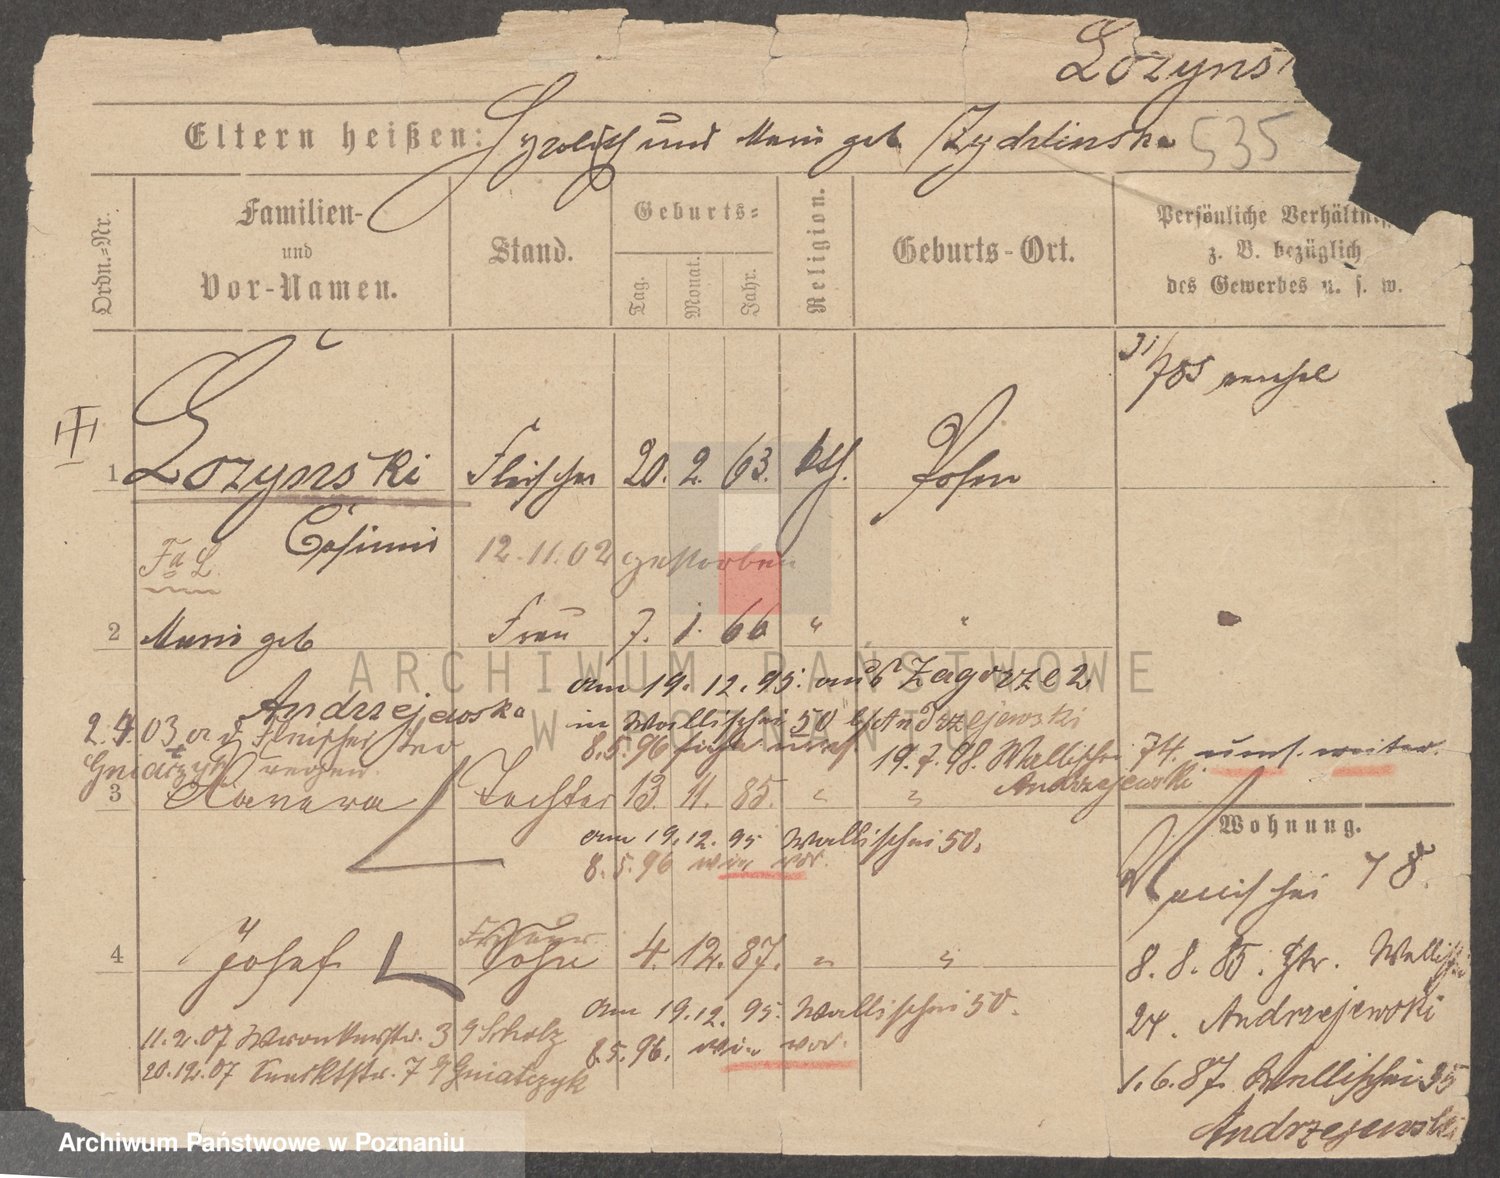 Lozyns
Eltern heißen: und Marie geb Zydlinska 535
Ordn.-Nr.
Familien-
und
Vor-Namen.
Stand.
Geburts-
Tag.
Monat.
Jahr.
Religion.
Geburts-Ort.
Persönliche Verhältnis
z. B. bezüglich
des Gewerbes u. s. w.
31/785
1 Lozynski Fleischer 20. 2. 63. kth. Posen
Casimir
Fa L. 12.11.02 gestorben
2 Marie geb Frau 7. 1. 66 " "
Andrzejewska
am 19. 12. 95. aus Zagorze 2
in Wallischei 50 b/Andrzejewski
2.4.03 Fleischer Leo
Gniatczyk
8.5.96
19.7.98. Wallischei 74. weiter.
Andrzejewski
3 Xavera Tochter 13. 11. 85. " "
am 19.12.95 Wallischei 50.
8.5.96 wie vor.
Wohnung.
Wallischei 78.
4 Josef Sohn 4. 12. 87. " "
am 19.12. 95. Wallischei 50.
8.5.96. wie vor.
11.2.07 Wronkerstr. 3 b/Scholz
20.12.07 7 b/Gniatczyk
8. 8. 85. Str. Wallischei
24. Andrzejewski
1.6.87. Wallischei 35
Andrzejewski
ARCHIWUM PAŃSTWOWE
W POZNANIU
Archiwum Państwowe w Poznaniu